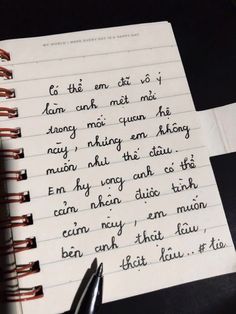 MY WORLD : MAKE EVERY DAY IS A HAPPY DAY
Có thể em đã vô ý
làm anh mệt mỏi
trong mối quan hệ
này, nhưng em không
muốn như thế đâu.
Em hy vọng anh có thể
cảm nhận được tình
cảm này, em muốn
bên anh thật lâu,
thật lâu..#tie